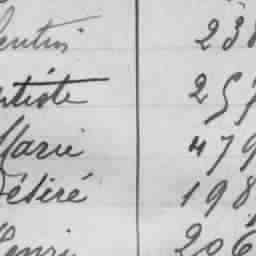 entin 238
ptiste 257
Marie 479
Désiré 198
Henri 206